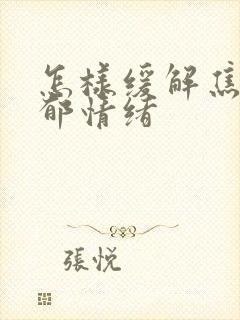 怎樣缓解焦
郁情绪
張悦